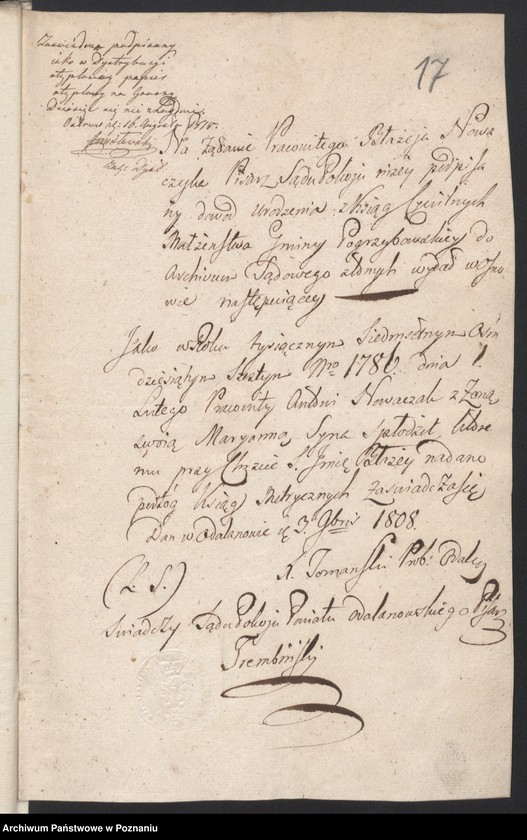 Zaswiadcza podpisany
iako w Dystrybucyi
stęplowey papier
stęplowy na Groszy
Dziesięć się nie znayduie
17
Na Żądanie Pracowitego Błażeja Nowa
czyka Pisarz Sądu Pokoju niżey podpisa
ny dowod Urodzenia z Xsiąg Cywilnych
Małżenstwa Gminy Pogrzybowskiey do
Archivum Sądowego złożnych wydał w osno
wie następuiącey
Jako w Roku tysiącznym Siedmsetnym Osm
dziesiątym Szostym Nro 1786. dnia 1.
Lutego Pracowity Antoni Nowaczek z Żoną
swoią Maryanną Syna Spłodził, które
mu przy Chrzcie S. Jmię Błażey nadano
podług Xsiąg Metrycznych Zaświadcza się
Dan w Odalanowie d. 3. Gbris 1808.
X. Tomanski Prob. Odal.
(L. S.)
Świadczy Sądu Pokoju Powiatu Odalanowskiego Pisarz
Trembiński
Archiwum Państwowe w Poznaniu